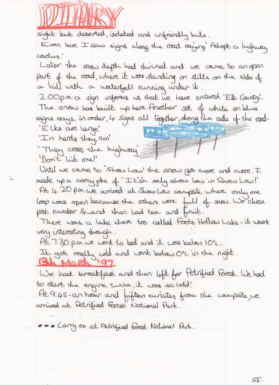 DIARY
right but deserted, isolated and unfriendly hills.
Even here I saw signs along the road saying 'Adopt a highway
Later the snow depth had thinned and we came to an open
part of the road, where it was standing on stilts on the side of
a hill with a waterfall running under it.
2.00pm a sign informs us that we have entered 'Elk County'.
The snow has built up here. Another set of white on blue
signs says, in order, 4 signs all together, along the side of the road-
'Elks are large'
'In herds they run'
'They cross the highway'
'Don't hit one!'
Until we came to 'Show Low' the snow got more and more. I
made up a comic phrase of 'I Wish only show low in Show Low!'
At 4.20pm we arrived at Show Low campsite, where only one
loop was open because the others were full of snow. We chose
post number 6 and then had tea and fruit.
There was a lake there too called Fools Hollow Lake - it wasn't
very interesting though.
At 7.30pm we went to bed and it was below 10°c.
It got really cold and went below 0°c in the night.
13th March '97
We had breakfast and then left for Petrified Forest. We had
to start the engine twice, it was so cold!
At 9.45 - an hour and fifteen minutes from the campsite, we
arrived at Petrified Forest National Park.
--- Carry on at Petrified Forest National Park.